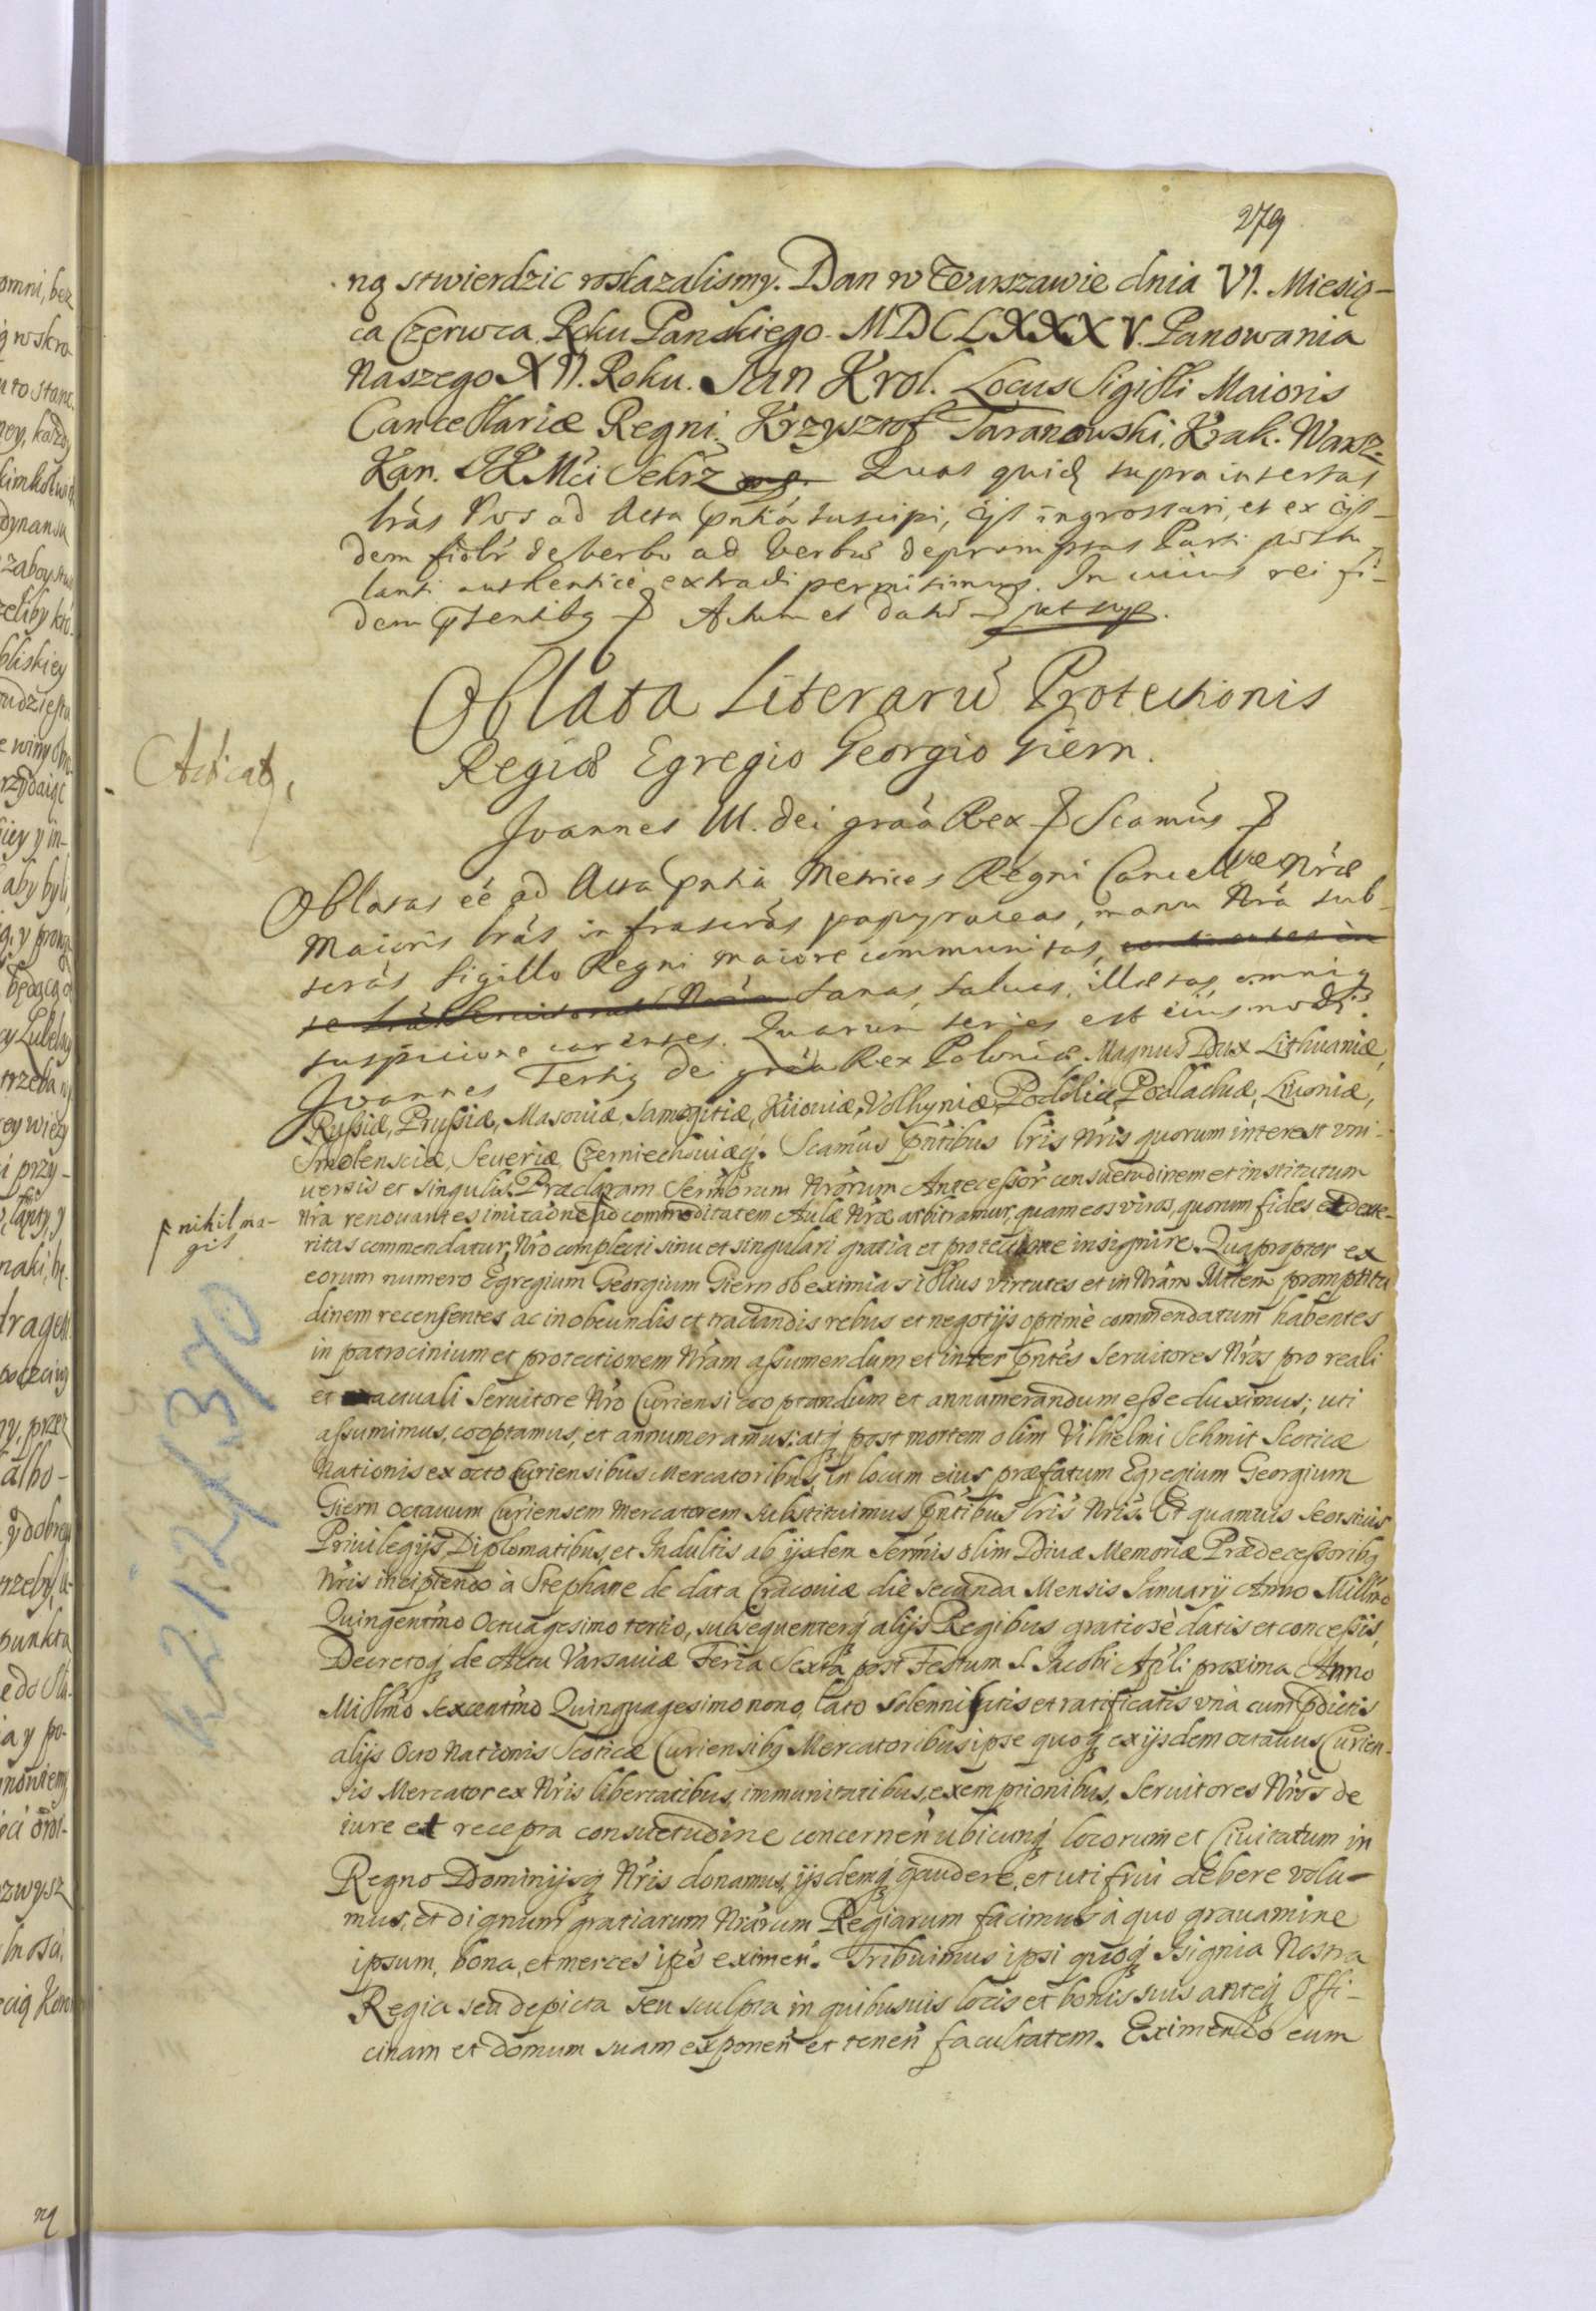 279
ną stwierdzic roskazalismy. Dan w Warszawie dnia VI. Miesią-
ca Czerwca Roku Panskiego MDCLXXXV. Panowania
Naszego XII. Roku. Jan Krol. Locus Sigilli Maioris
Cancellariæ Regni. Krzysztof Taranowski, Krak. Warsz=
Kan. JKMci Sekrz Quas quidę supra insertas
lrás Nos ad Acta pntia suscipi, ijs ingrossari, et ex ijs-
dem fidlr de verbo ad verbũ depromptas Parti postu-
lanti authenticè extradi permisimus. In cuius rei fi-
dem pꞩentibꝫ Actum et datũ ut sup.
Oblata Literarũ Protectionis
Regiæ Egregio Georgio Giern.
Acticatꝫ
Joannes III. dei graã Rex Scamus
Oblatas eé ad Acta pntia Metrices Regni Cancellriæ Nræ
Maioris lrás infrascrás papyraceas, manu Nrá sub-
scrás sigillo Regni maiore communitas,
sanas, salvas, illæsas omniq
suspicione carentes. Quarum series est eiusmodi:
Joannes Tertiꝫ Dei grãa Rex Poloniæ, Magnus Dux Lithuaniæ,
Russiæ, Prussiæ, Masoviæ, Samogitiæ, Kiioviæ, Volhyniæ, Podoliæ, Podlachiæ, Livoniæ,
Smolensciæ, Severiæ, Czerniechoviæq. Scamus pntibus lris Nris quorum interest uni-
versis et singulis. Præclaram Sermorum Nrorum Antecessor consuetudinem et institutum
nihil ma-
gis
Nra renovantes imitaone ad commoditatem Aulæ Nræ arbitramur, quam eos viros, quorum fides et dexte-
ritas commendatur, Nro complecti sinu et singulari gratia et protectione insignire. Quapropter ex
eorum numero Egregium Georgium Giern ob eximias illius virtutes et in Nram Mttem promptitu
dinem recensentes ac in obeundis et tractandis rebus et negotijs optimè commendatum habentes
in patrocinium et protectionem Nram assumendum et inter pntes Servitores Nros pro reali
et actuali Servitore Nro Curiensi cooptandum et annumerandum esse duximus; uti
assumimus, cooptamus, et annumeramus: atq post mortem olim Vilhelmi Schmit Scoticæ
Nationis ex octo Curiensibus Mercatoribus, in locum eius præfatum Egregium Georgium
Giern Octavum Curiensem Mercatorem substituimus pntibus lris Nris. Et quamvis seorsivis
Privilegijs, Diplomatibus, et Indultis ab ijsdem Sermis olim Divæ Memoriæ Prædecessoribꝫ
Nris incipiendo à Stephane de data Cracoviæ die secunda Mensis January Anno Millmo
Quingentmo Octuagesimo tertio, subsequenterq alijs Regibus gratiosè datis et concessis,
Decretoq de Actu Varsaviæ Feria Sexta post Festum S. Jacobi Apli proxima Anno
Millmo Sexcentmo Quinquagesimo nono, lato solennisatis et ratificatis unà cum pdictis
alijs Octo Nationis Scoticæ Curiensibꝫ Mercatoribus ipse quoq ex ijsdem octavus Curien-
sis Mercator ex Nris libertatibus, immunitatibus, exemptionibus, Servitores Nros de
iure et recepta consuetudine concernen ubicunq locorum et Civitatum in
Regno Dominijsq Nris donamus, ijsdemq gaudere, et uti frui debere volu-
mus, et dignum gratiarum Nrarum Regiarum facimus à quo gravamine
ipsum, bona, et merces ipꞩ eximen. Tribuimus ipsi quoq Insignia Nostra
Regia seu depicta seu sculpta in quibusvis locis et bonis suis anteq Offi-
cinam et domum suam exponen et tenen facultatem. Eximendo eum